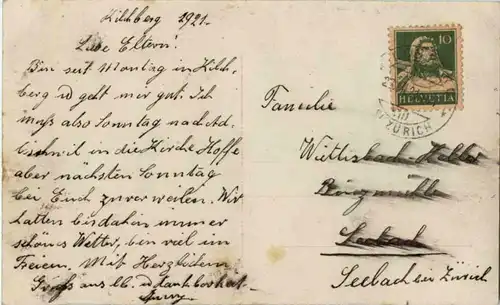 Kilchberg 1921.
Liebe Eltern!
Bin seit Montag in Kilch-
berg u geht mir gut. Ich
muss also Sonntag nach Ad-
lischwil in die Kirche Hoffe
aber nächsten Sonntag
bei Euch zu verweilen. Wir
hatten bis dahin immer
schönes Wetter, bin viel im
Freien. Mit Herzlichem
Gruss aus lb. u dankbarkeit
10
HELVETIA
ZÜRICH
Familie
Wittisbach-Keller
Burgmühle
Seebach
Seebach bei Zürich